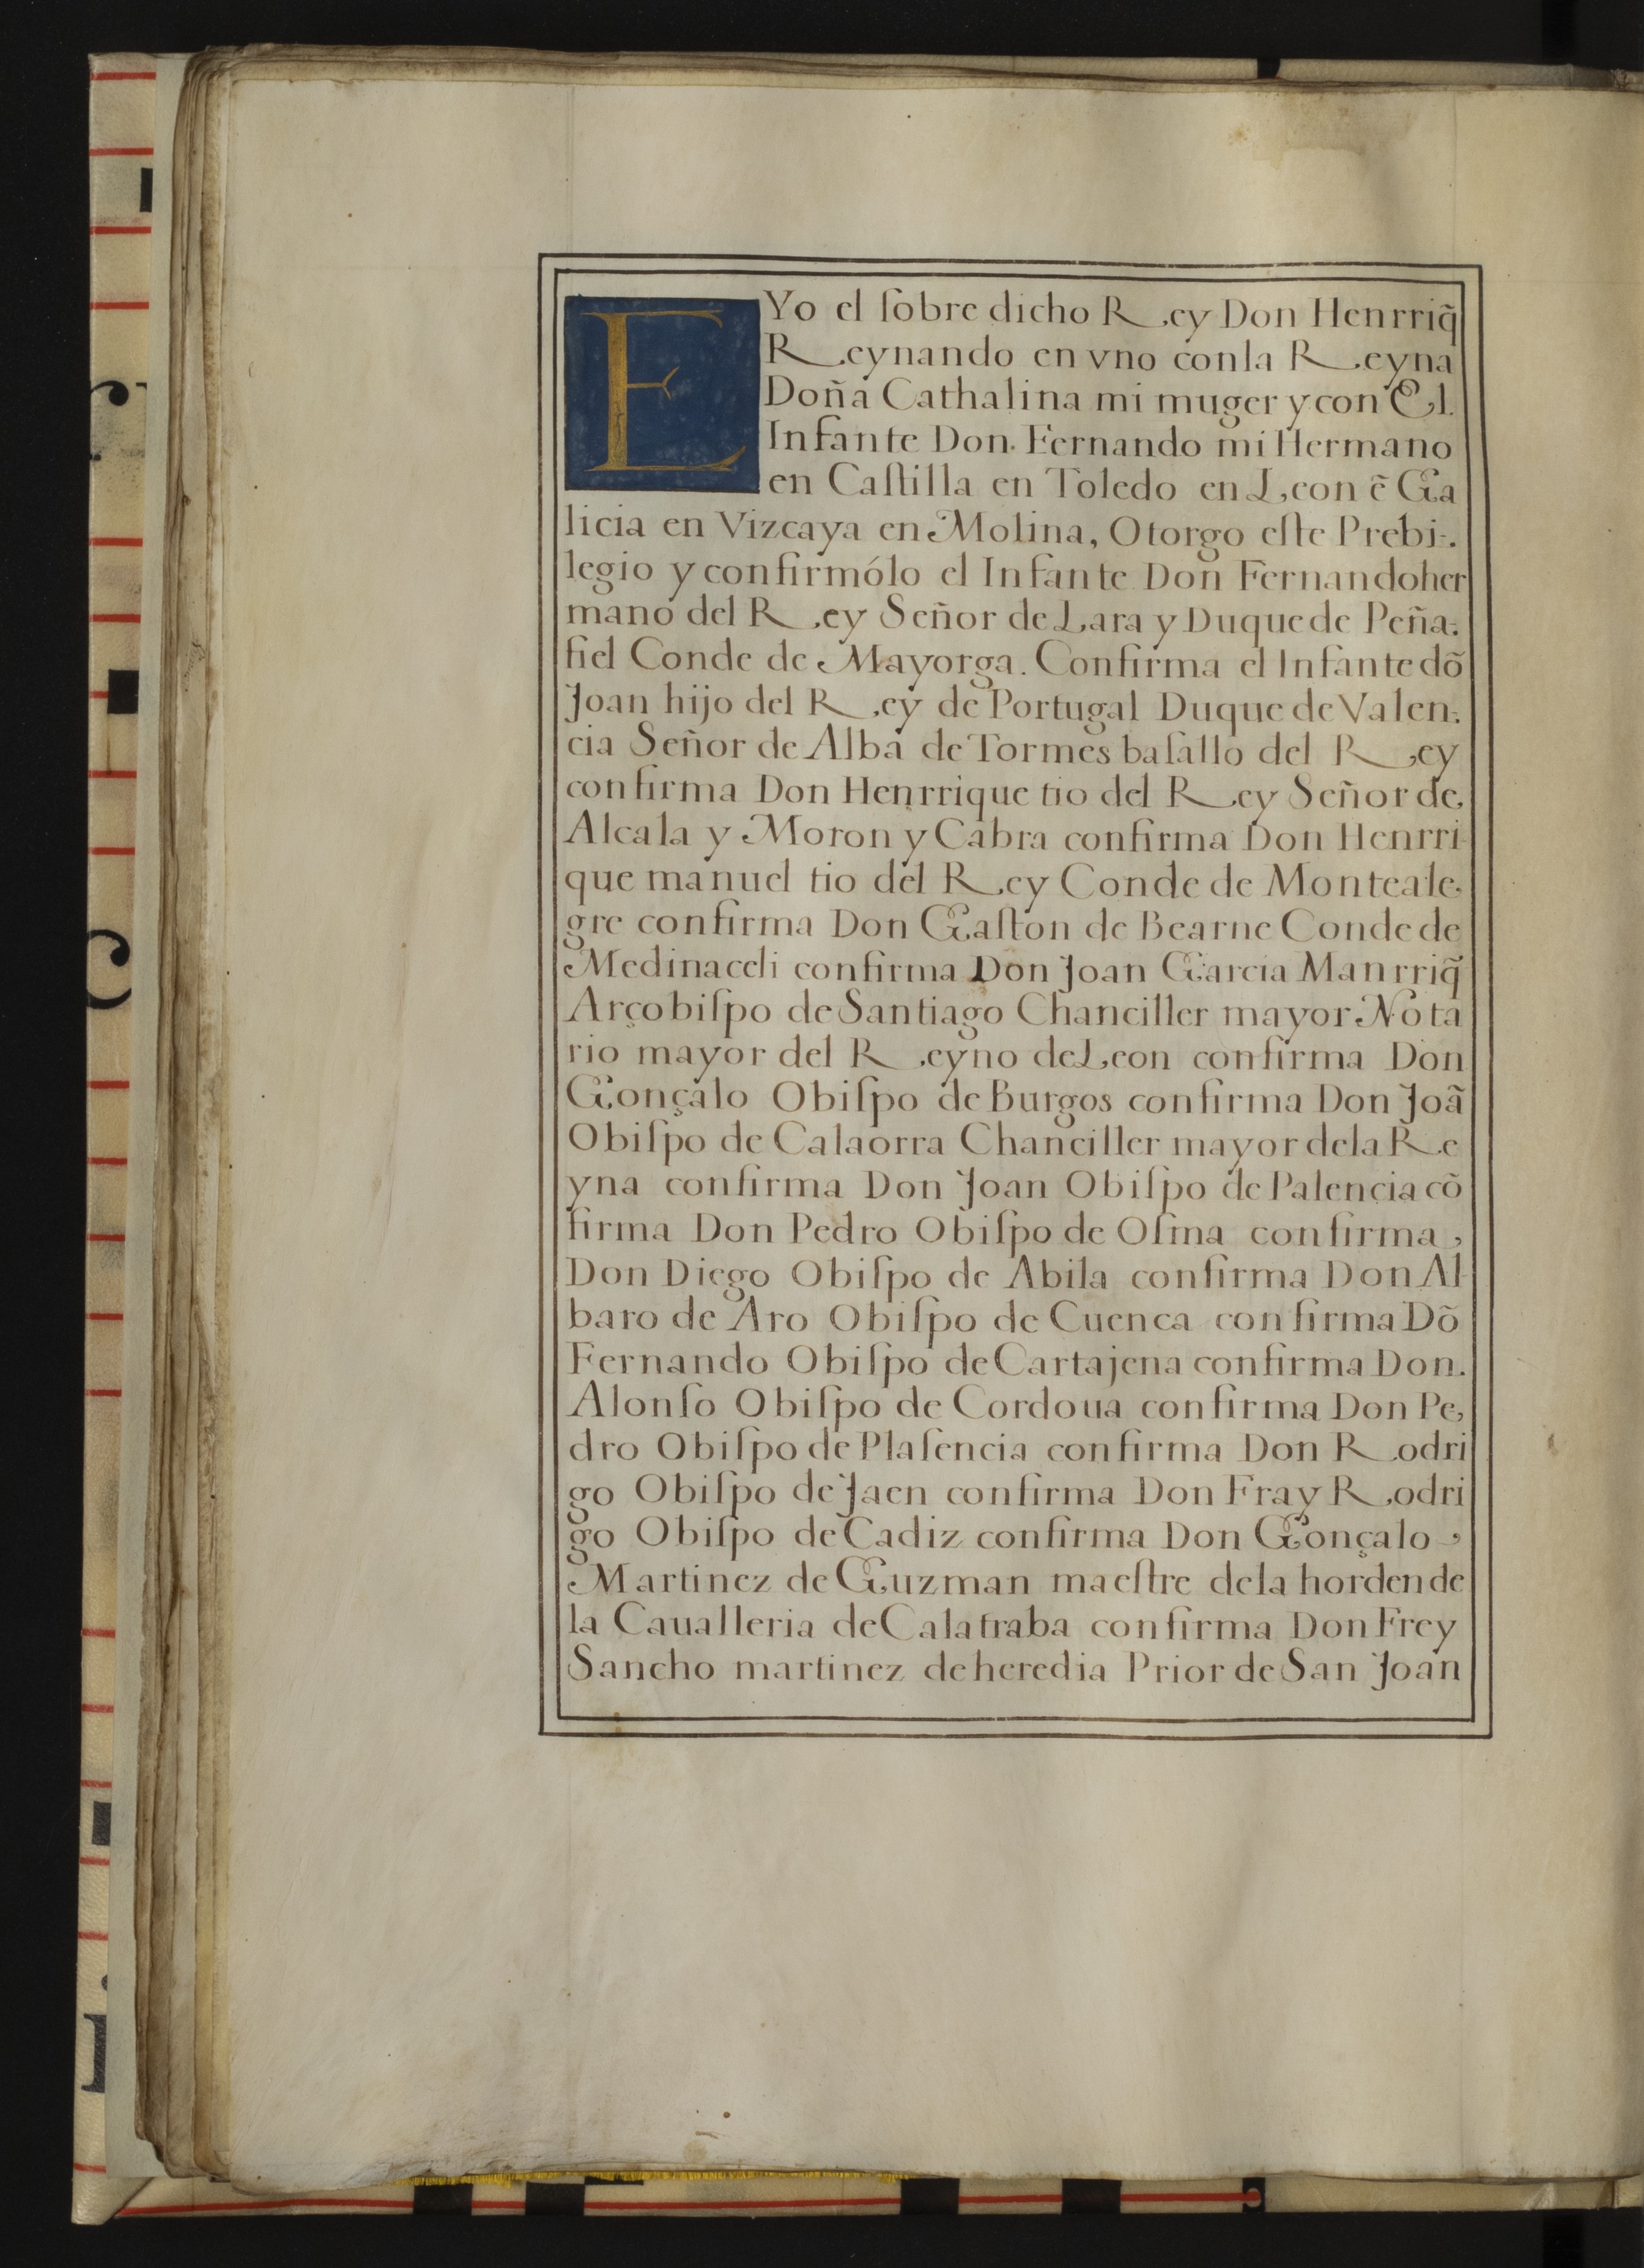 E Yo el ſobre dicho Rey Don Henrriq̃
Reynando en vno conla Reyna
Doña Cathalina mi muger y con El.
Infante Don. Fernando mi Hermano
en Caſtilla en Toledo en Leon ẽ Ga
licia en Vizcaya en Molina, Otorgo eſte Prebi-.
legio y confirmólo el Infante Don Fernando her
mano del Rey Señor de Lara y Duque de Peña-.
fiel Conde de Mayorga. Confirma el Infante dõ
Joan hijo del Rey de Portugal Duque de Valen-.
cia Señor de Alba de Tormes baſallo del Rey
confirma Don Henrrique tio del Rey Señor de,
Alcala y Moron y Cabra confirma Don Henrri
que manuel tio del Rey Conde de Monteale,
gre confirma Don Gaſton de Bearne Conde de
Medinaceli confirma Don Joan Garcia Manrriq̃
Arçobiſpo de Santiago Chanciller mayor Nota
rio mayor del Reyno de Leon confirma Don
Gonçalo Obiſpo de Burgos confirma Don Joã
Obiſpo de Calaorra Chanciller mayor dela Re
yna confirma Don Joan Obiſpo de Palencia cõ
firma Don Pedro Obiſpo de Oſma confirma,
Don Diego Obiſpo de Abila confirma Don Al
baro de Aro Obiſpo de Cuenca confirma Dõ
Fernando Obiſpo de Cartajena confirma Don.
Alonſo Obiſpo de Cordoua confirma Don Pe,
dro Obiſpo de Plaſencia confirma Don Rodri
go Obiſpo de Jaen confirma Don Fray Rodri
go Obiſpo de Cadiz confirma Don Gonçalo,
Martinez de Guzman maeſtre dela horden de
la Caualleria de Calatraba confirma Don Frey
Sancho martinez de heredia Prior de San Joan